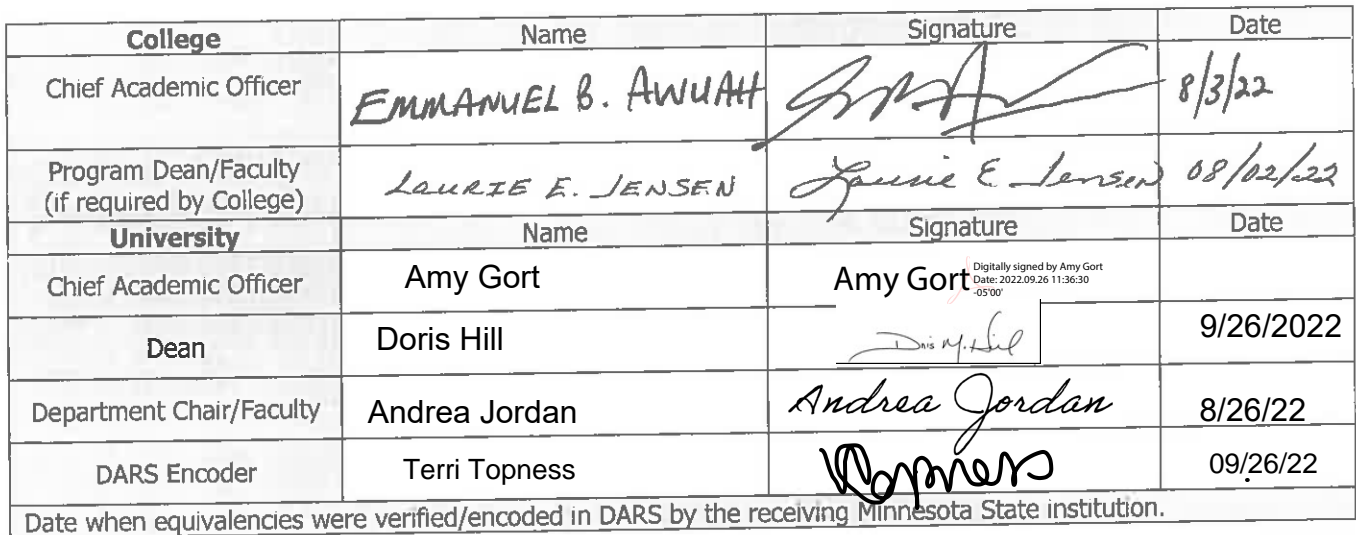 College Name Signature Date
Chief Academic Officer EMMANUEL B. AWUAH 8/3/22
Program Dean/Faculty
(if required by College) LAURIE E. JENSEN Laurie E Jensen 08/02/22
University Name Signature Date
Chief Academic Officer Amy Gort Amy Gort Digitally signed by Amy Gort
Date: 2022.09.26 11:36:30
-05'00'
Dean Doris Hill Doris M. Hill 9/26/2022
Department Chair/Faculty Andrea Jordan Andrea Jordan 8/26/22
DARS Encoder Terri Topness Topness 09/26/22
Date when equivalencies were verified/encoded in DARS by the receiving Minnesota State institution.